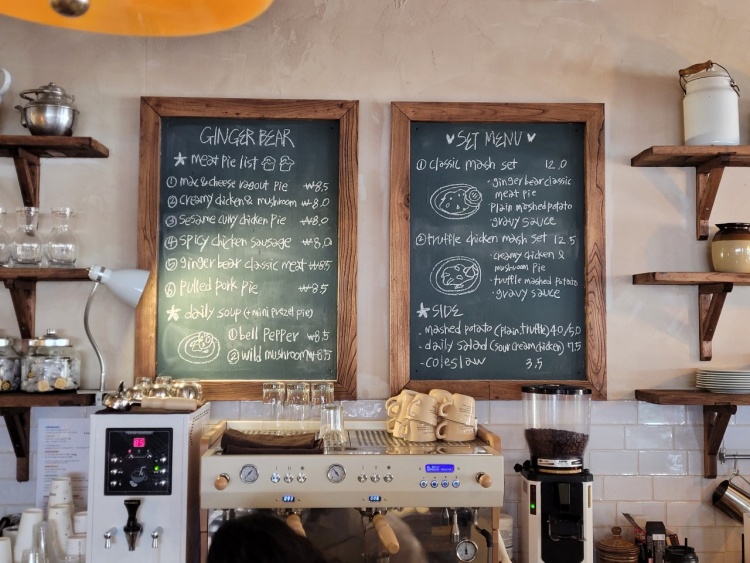 GINGER BEAR
★ meat pie list
① mac & cheese ragout pie ₩8.5
② creamy chicken & mushroom ₩8.0
③ sesame curry chicken pie ₩8.0
④ spicy chicken sausage ₩8.0
⑤ ginger bear classic meat ₩8.5
⑥ pulled pork pie ₩8.5
★ daily soup (+mini pretzel pie)
① bell pepper ₩8.5
② wild mushroom ₩8.5
♥ SET MENU ♥
① classic mash set 12.0
· ginger bear classic
meat pie
plain mashed potato
gravy sauce
② truffle chicken mash set 12.5
· creamy chicken &
mushroom pie
· truffle mashed potato
· gravy sauce
★ SIDE
. mashed potato (plain, truffle) 4.0/5.0
- daily salad (sour cream chicken) 7.5
- coleslaw 3.5